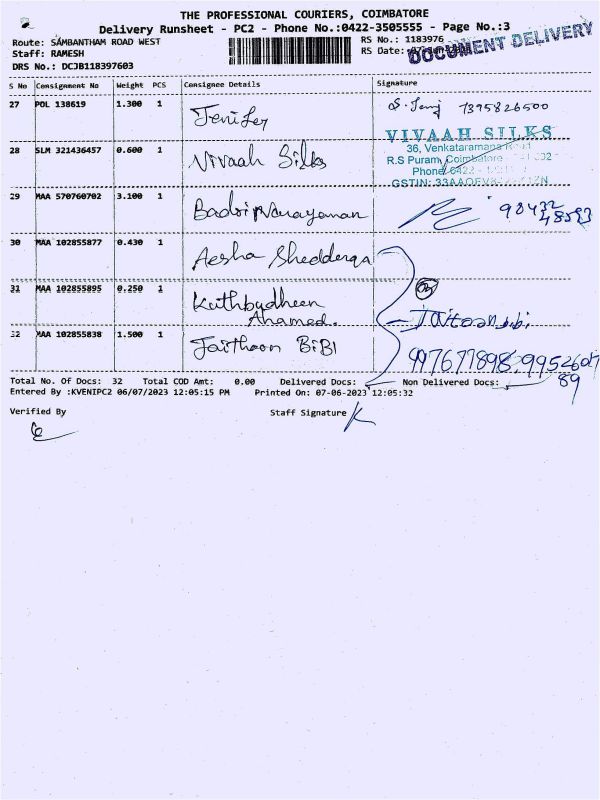 THE PROFESSIONAL COURIERS, COIMBATORE
Delivery Runsheet - PC2 - Phone No.:0422-3505555 - Page No.:3
Route: SAMBANTHAM ROAD WEST
RS No.: 1183976
Staff: RAMESH
RS Date:
DOCUMENT DELIVERY
DRS No.: DCJB118397603
S No Consignment No Weight PCS Consignee Details Signature
27 POL 138619 1.300 1 Jenifer
28 SLM 321436457 0.600 1 Vivaah Silks
VIVAAH SILKS
36, Venkataramana
R.S Puram, Coimbatore
Phone: 0422
GSTIN:
29 MAA 570760702 3.100 1 Badri Narayanan
30 MAA 102855877 0.430 1 Aesha
31 MAA 102855895 0.250 1 Kuthbudheen
Ahamed.
32 MAA 102855838 1.500 1 Jaithoon BiBI
Total No. Of Docs: 32 Total COD Amt: 0.00 Delivered Docs: Non Delivered Docs:
Entered By :KVENIPC2 06/07/2023 12:05:15 PM Printed On: 07-06-2023 12:05:32
Verified By Staff Signature